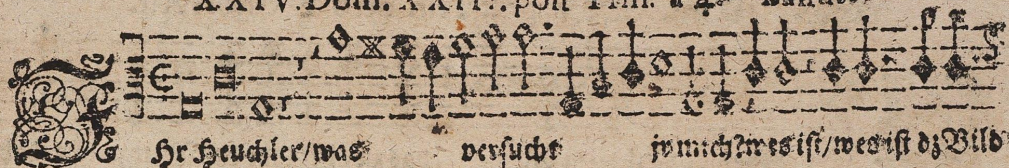 XXIV. Dom. XXII. post Trin. à 4.
IHr Heuchler/was versucht jr mich? wes ist/wes ist dz Bild